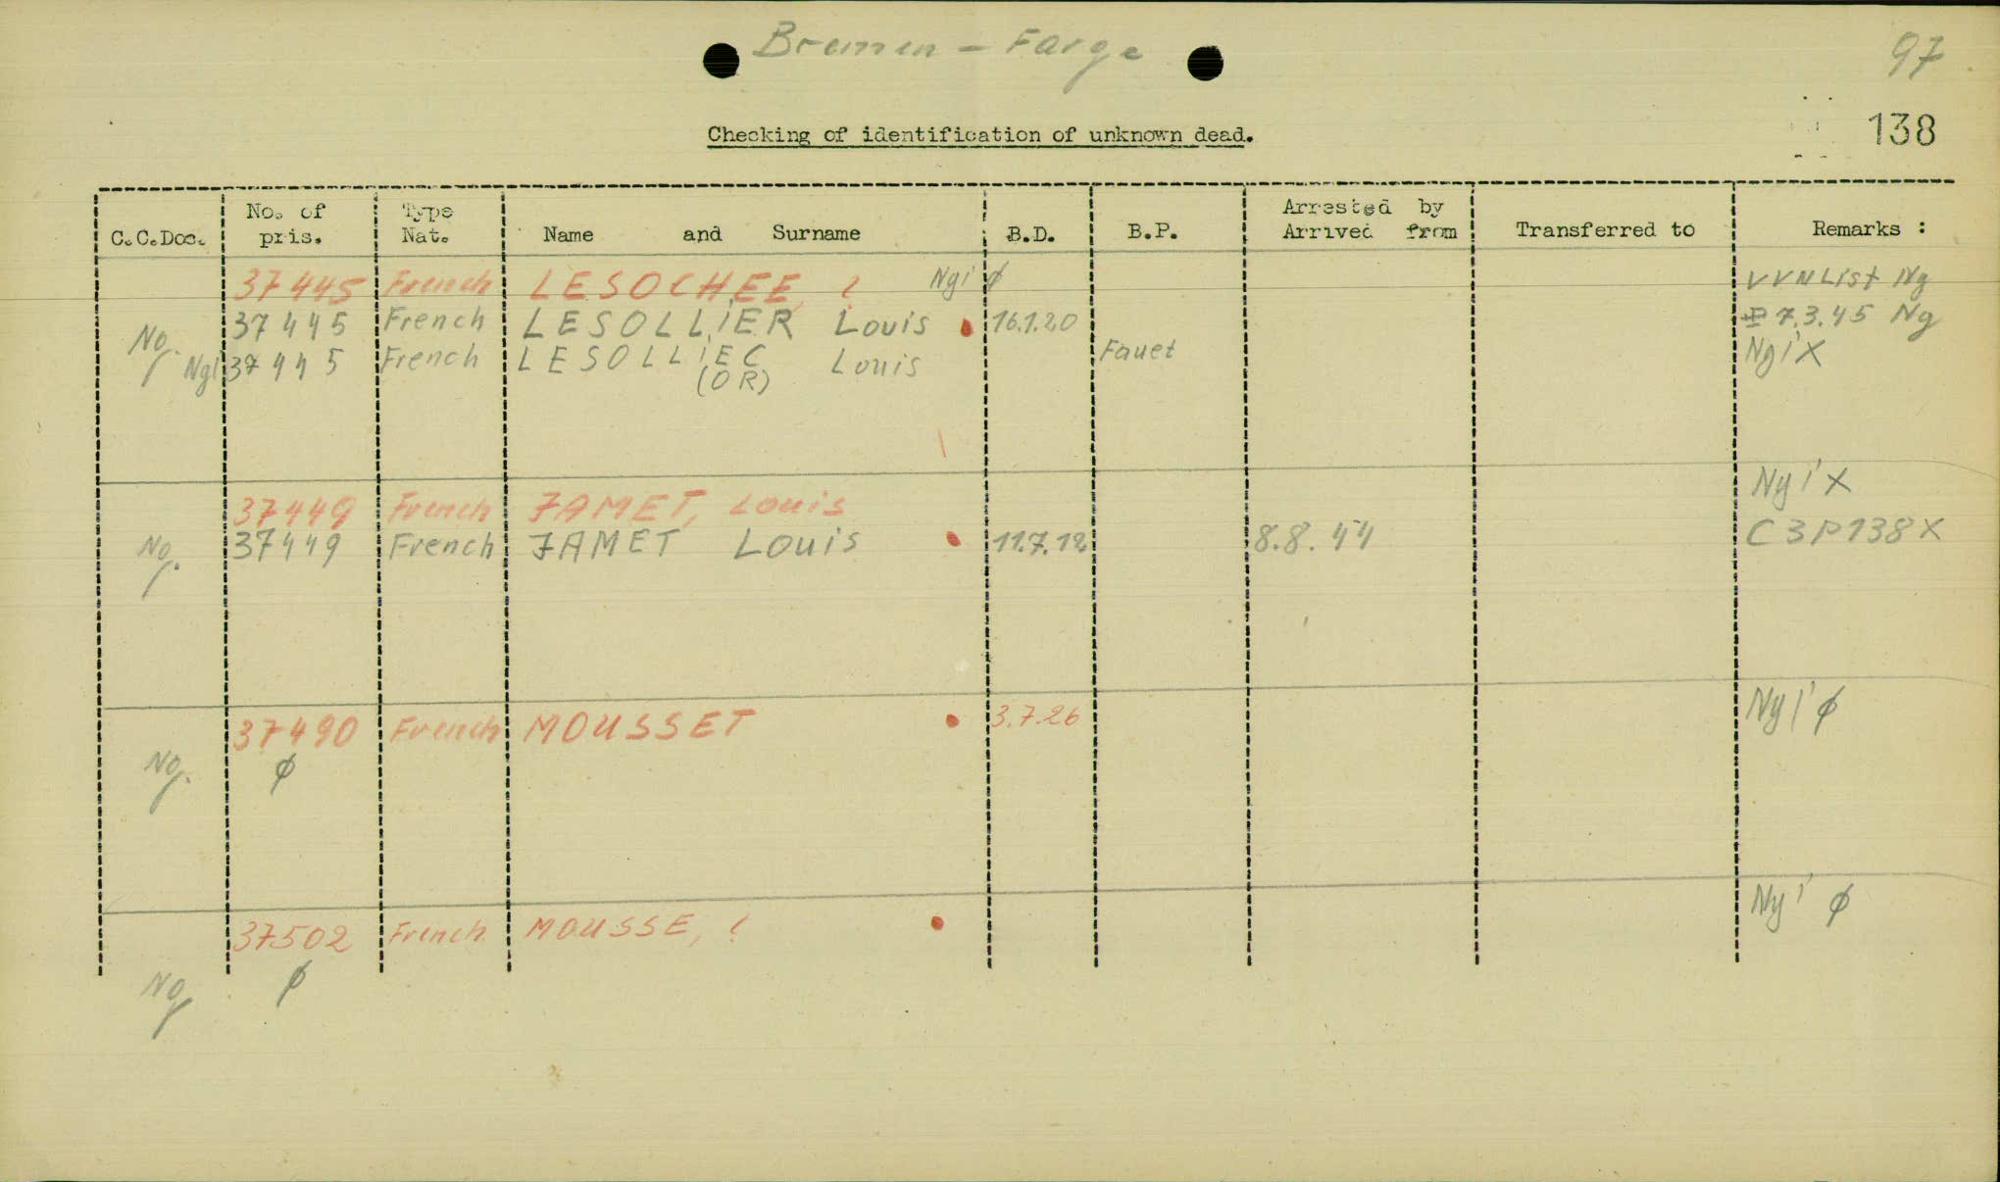 Bremen - Farge
97
138
Checking of identification of unknown dead.
C.C.Doc. No. of pris. Type Nat. Name and Surname B.D. B.P. Arrested by Arrived from Transferred to Remarks :
37445 French LESOCHEE, ? Ngi ∅ VVN List Ng
No. 37445 French LESOLLIER Louis 16.1.20 7.3.45 Ng
Ngi 37445 French LESOLLIEC Louis Fauet Ngi X
(OR)
Ngi X
37449 French JAMET, Louis
No. 37449 French JAMET Louis 11.7.12 8.8.44 C3P138X
37490 French MOUSSET 3.7.26 Ngi ∅
No. ∅
37502 French MOUSSE, ? Ngi ∅
No ∅